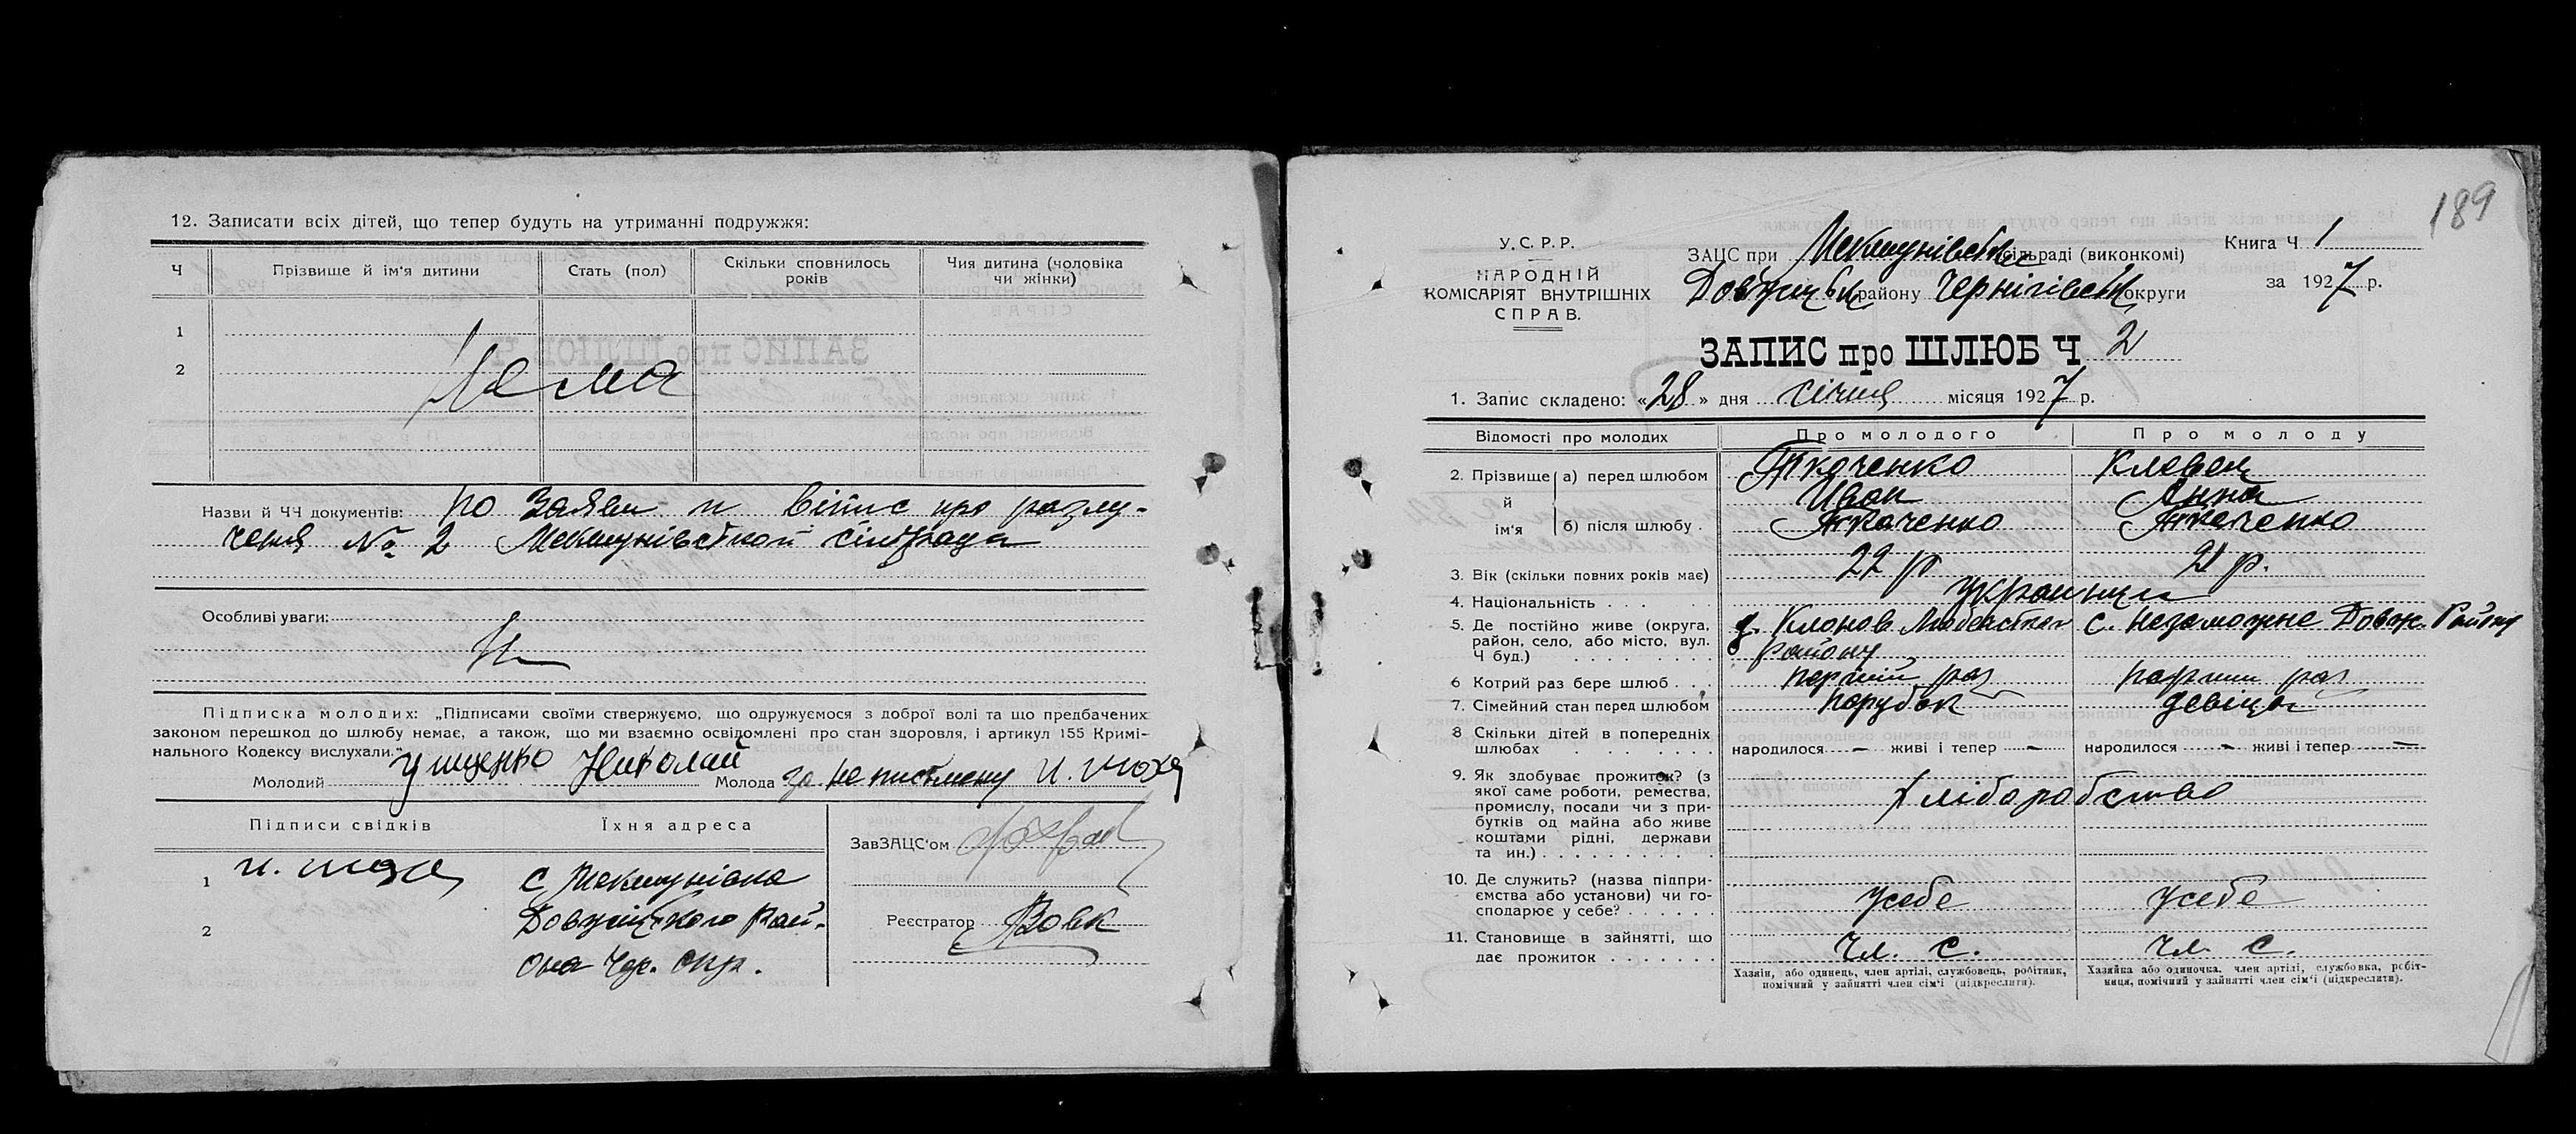 12. Записати всіх дітей, що тепер будуть на утриманні подружжя:
Ч
Прізвище й ім'я дитини
Стать (пол)
Скільки сповнилось років
Чия дитина (чоловіка чи жінки)
1
2
Нема
Назви й ЧЧ документів: по заяви и вітис про разлу-
ченя № 2 Мекшунівской сільрада
Особливі уваги:
Підписка молодих: „Підписами своїми ствержуємо, що одружуємося з доброї волі та що предбачених
законом перешкод до шлюбу немає, а також, що ми взаємно освідомлені про стан здоровля, і артикул 155 Кримі-
нального Кодексу вислухали."
Молодий Николай Молода за неписьмену И.
Підписи свідків
Їхня адреса
1 И.
с Мекшунівка
2
Довжицкого рай-
она Чер. окр.
ЗавЗАЦС'ом
Реєстратор Вовк
189
У.С.Р.Р.
НАРОДНІЙ
КОМІСАРІЯТ ВНУТРІШНІХ
СПРАВ.
ЗАЦС при Мекшунівской сільраді (виконкомі)
Довжицьк району Чернігівськ округи
Книга Ч 1
за 1927 р.
ЗАПИС про ШЛЮБ Ч 2
1. Запис складено: «28» дня січня місяця 1927 р.
Відомості про молодих
Про молодого
Про молоду
2. Прізвище й ім'я
а) перед шлюбом
Ткаченко
Иван
Анна
б) після шлюбу
Ткаченко
Ткаченко
3. Вік (скільки повних років має)
22 р
21 р.
4. Національність
украинци
5. Де постійно живе (округа, район, село, або місто, вул. Ч буд.)
д. Клонов Любецкаго
району
с. Незаможне Довж. Району
6 Котрий раз бере шлюб
перший раз
перший раз
7. Сімейний стан перед шлюбом
парубок
девіця
8 Скільки дітей в попередніх шлюбах
народилося — живі і тепер —
народилося — живі і тепер —
9. Як здобуває прожиток? (з
якої саме роботи, ремества,
промислу, посади чи з при-
бутків од майна або живе
коштами рідні, держави
та ин.)
хліборобство
10. Де служить? (назва підпри-
ємства або установи) чи го-
сподарює у себе?
усебе
усебе
11. Становище в зайнятті, що
дає прожиток
чл. с.
чл. с.
Хазяїн, або одинець, член артілі, службовець, робітник,
помічний у зайнятті член сім'ї (підкреслити).
Хазяйка або одиночка, член артілі, службовка, робіт-
ниця, помічний у зайнятті член сім'ї (підкреслити).